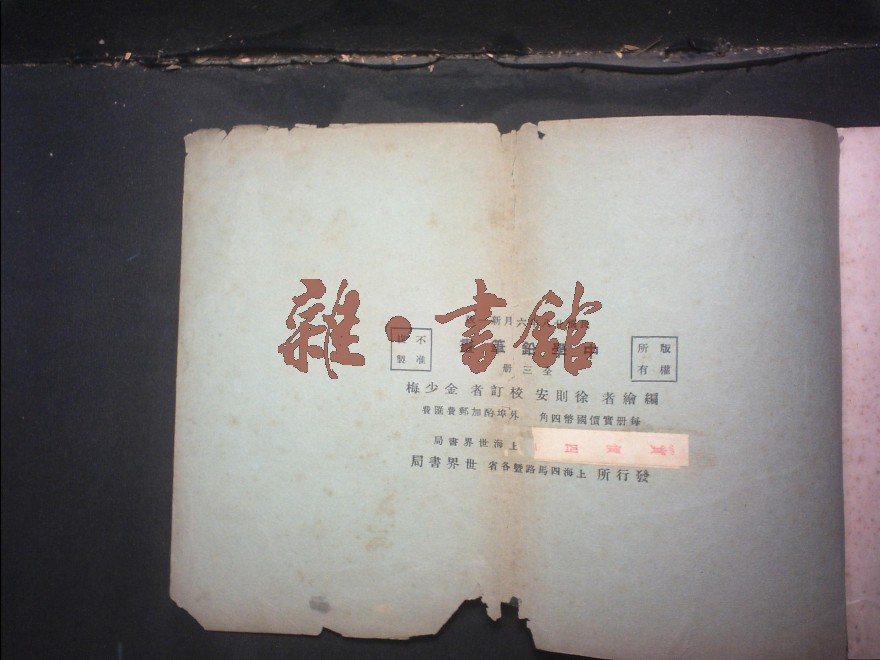 雜·書館
六月新一版
版權所有
中學鉛筆畫
不准
製
全三册
編繪者 徐則安 校訂者 金少梅
每册實價國幣四角 外埠酌加郵費匯費
上海世界書局
發行所 上海四馬路暨各省 世界書局